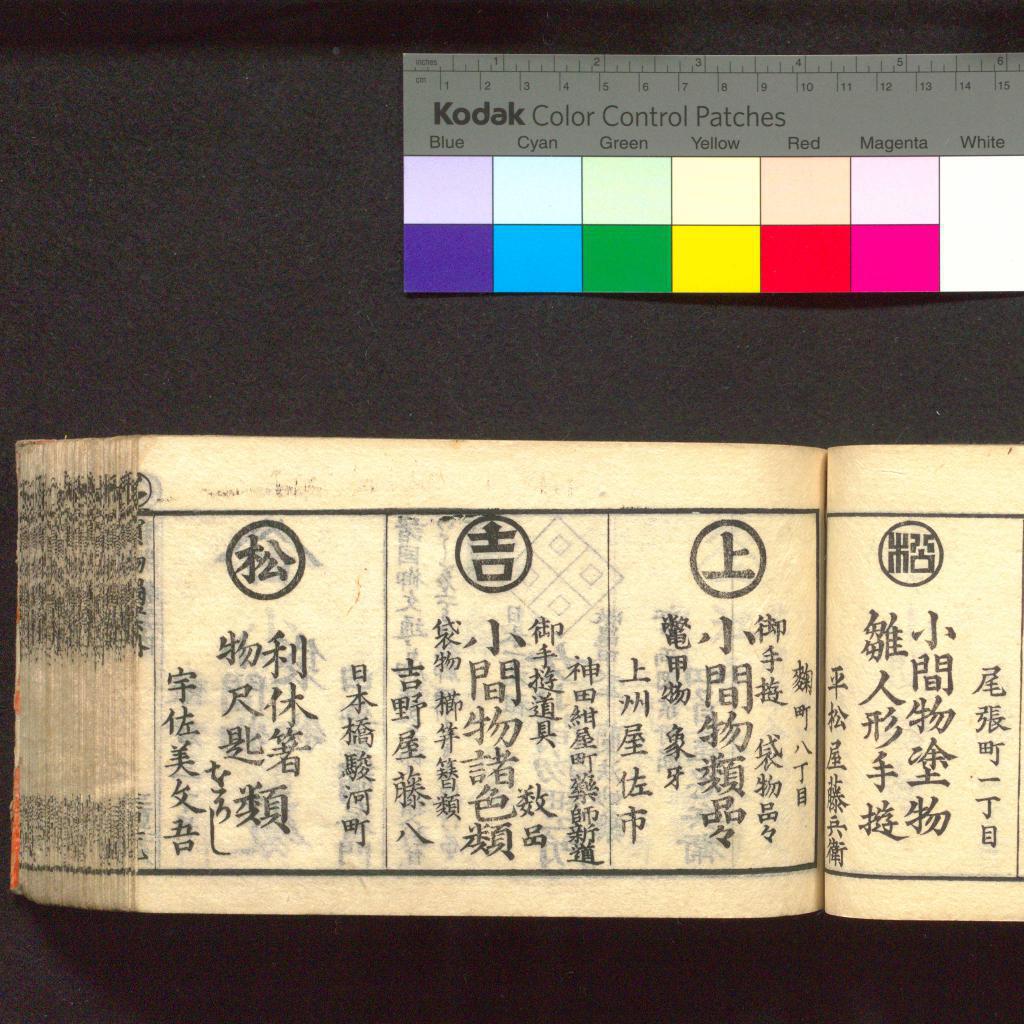 inches 1 2 3 4 5 6
cm 1 2 3 4 5 6 7 8 9 10 11 12 13 14 15
Kodak Color Control Patches
Blue Cyan Green Yellow Red Magenta White
尾張町一丁目
小間物塗物
雛人形手遊
平松屋藤兵衛
上
麹町八丁目
御手遊 袋物品々
小間物類品々
鼈甲物 象牙
上州屋佐市
吉
神田紺屋町藥師新道
御手遊道具 数品
小間物諸色類
袋物 櫛笄簪類
吉野屋藤八
松
日本橋駿河町
利休箸類
物尺匙
宇佐美文吾